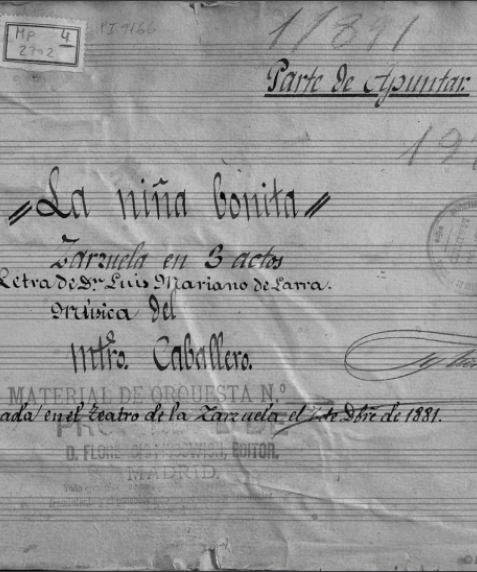 MP 4
2792
1/891
Parte de Apuntar.
"La niña bonita"
Zarzuela en 3 actos
Letra de Dn Luis Mariano de Larra.
Música del
Mtro. Caballero.
MATERIAL DE ORQUESTA N.º
ada en el Teatro de la Zarzuela el 7 de Dbre de 1881.
PROPIEDAD DE
D. FLORENCIO FISCOWICH, EDITOR.
MADRID.